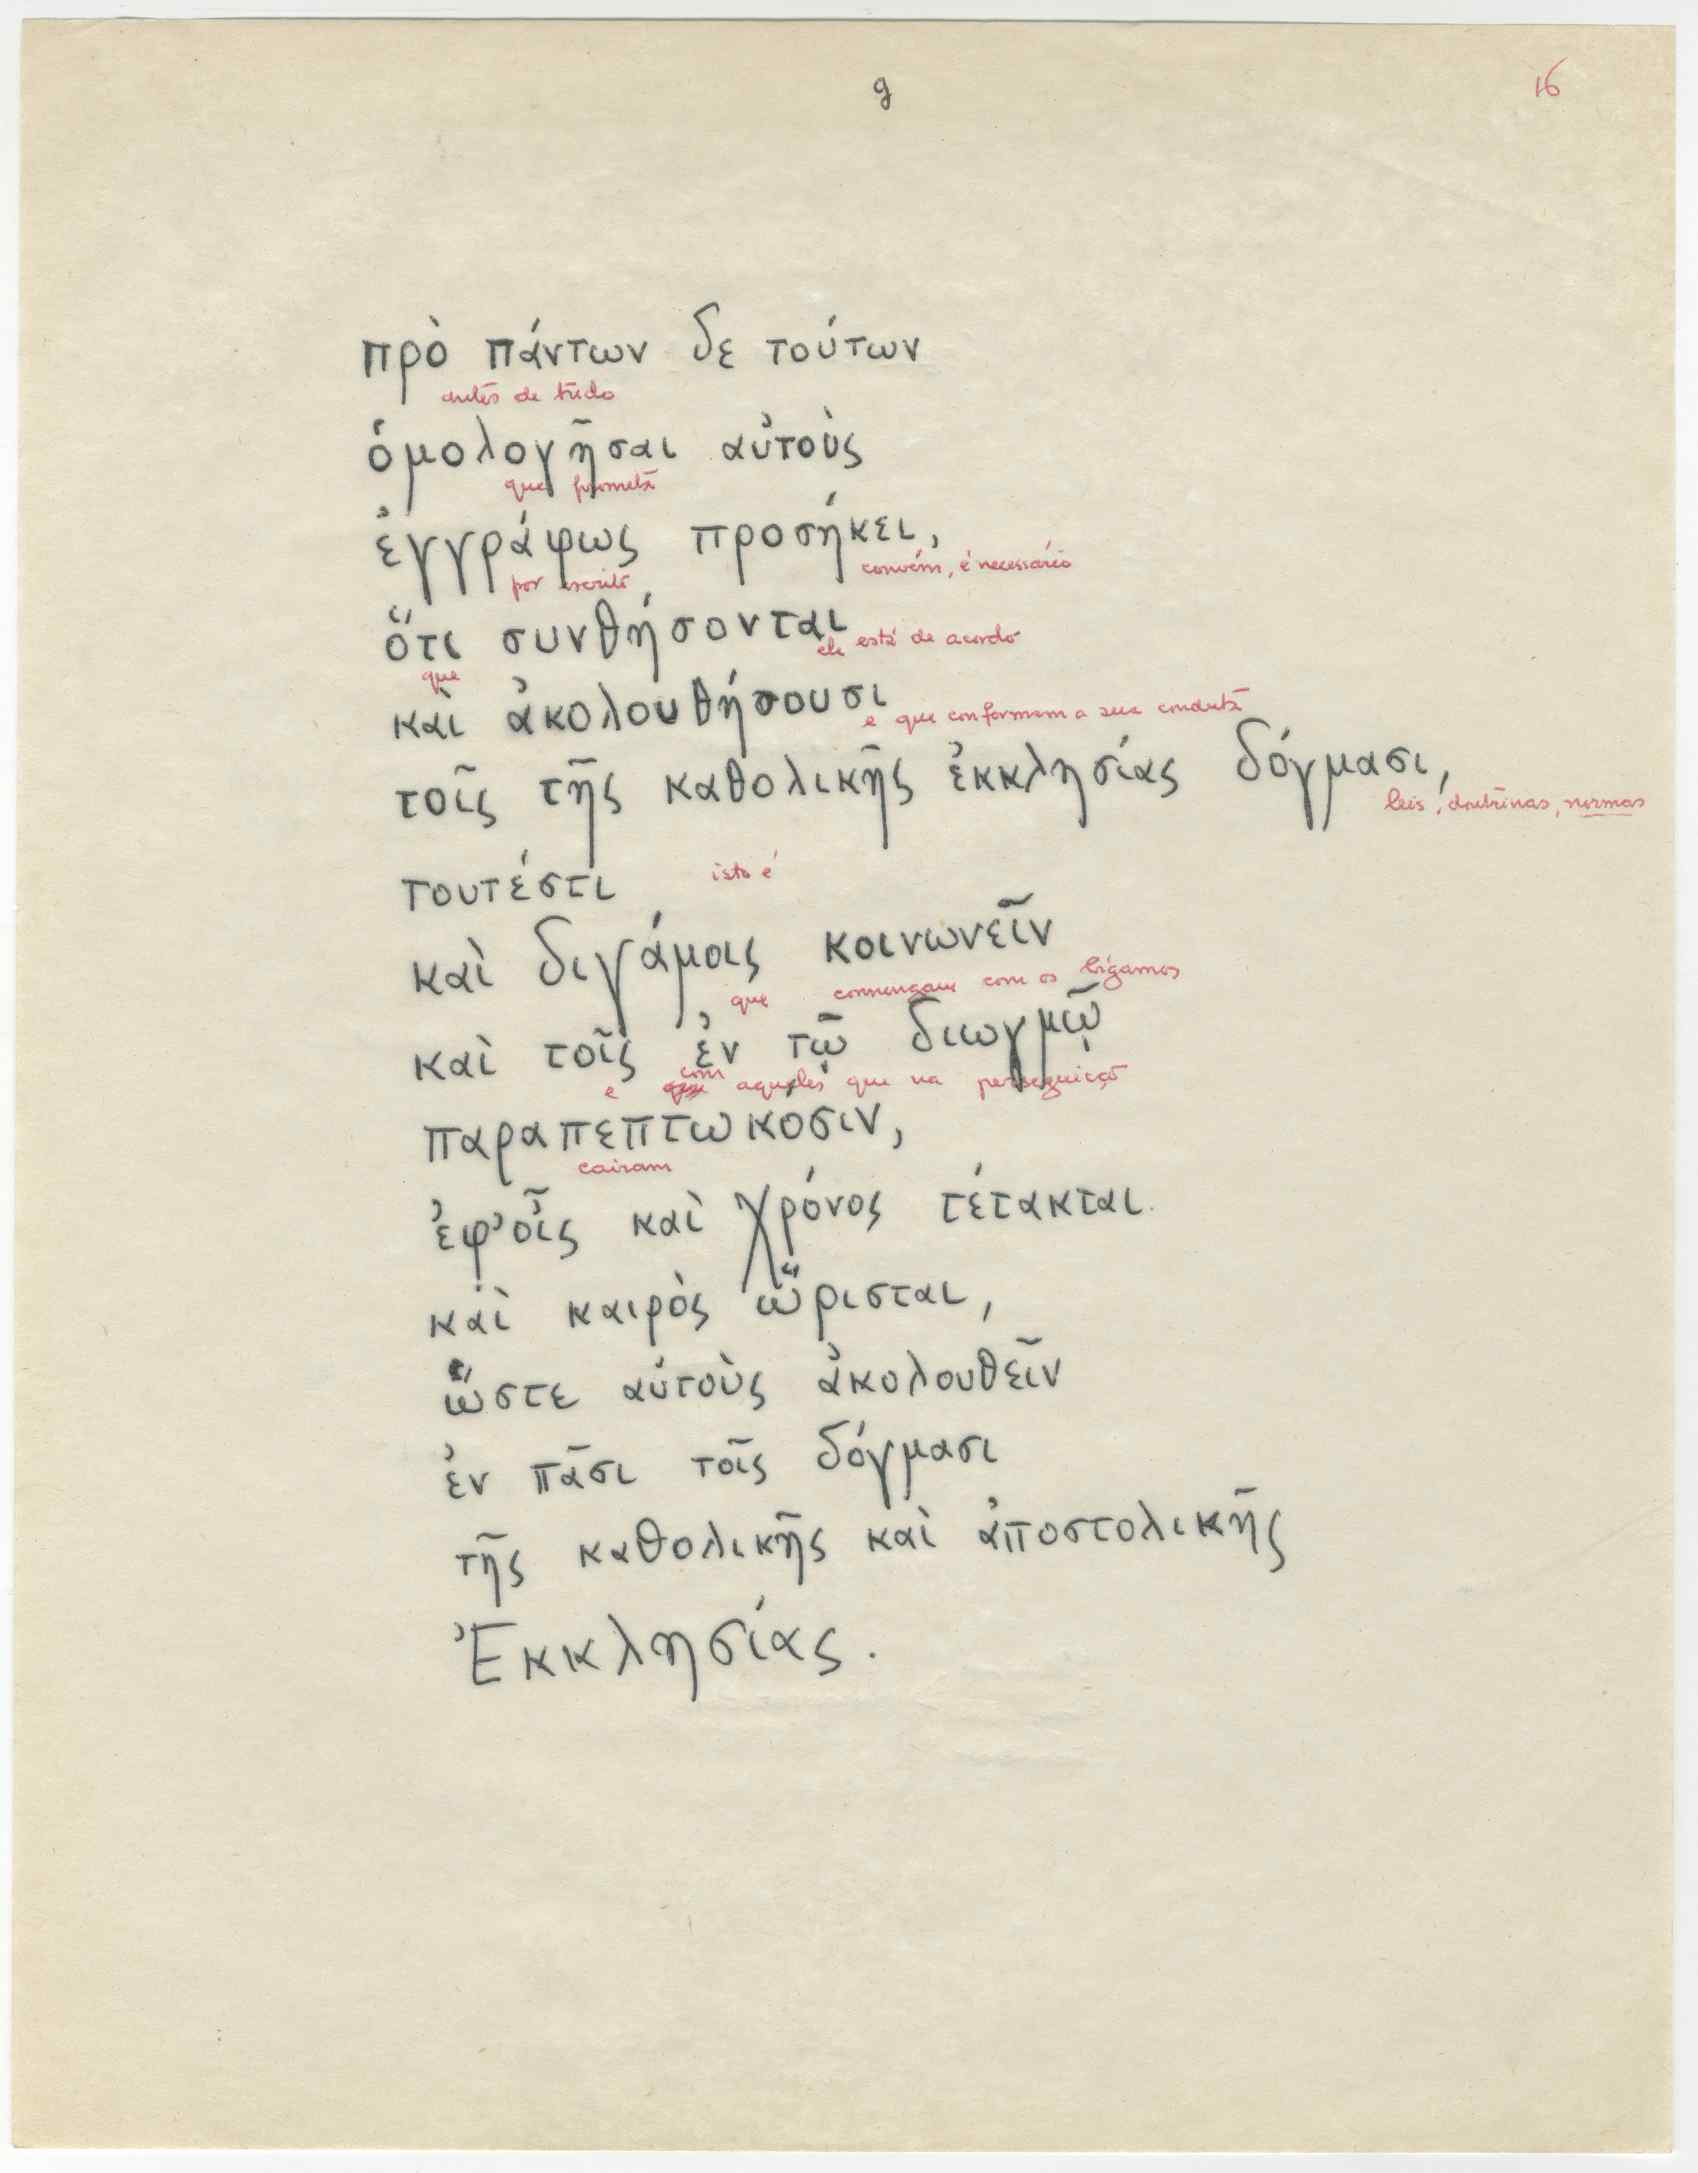 9
16
πρὸ πάντων δε τούτων
antes de tudo
ὁμολογῆσαι αὐτοὺς
que prometã
ἐγγράφως προσήκει,
por escrito
convém, é necessário
ὅτι συνθήσονται
que
ele está de acordo
καὶ ἀκολουθήσουσι
e que conformem a sua conduta
τοῖς τῆς καθολικῆς ἐκκλησίας δόγμασι,
leis, doutrinas, normas
τουτέστι
isto é
καὶ διγάμοις κοινωνεῖν
que comungam com os bígamos
καὶ τοῖς ἐν τῷ διωγμῷ
e com aqueles que na perseguição
παραπεπτωκόσιν,
cairam
ἐφ’οἷς καὶ χρόνος τέτακται
καὶ καιρὸς ὥρισται,
ὥστε αὐτοὺς ἀκολουθεῖν
ἐν πᾶσι τοῖς δόγμασι
τῆς καθολικῆς καὶ ἀποστολικῆς
Ἐκκλησίας.